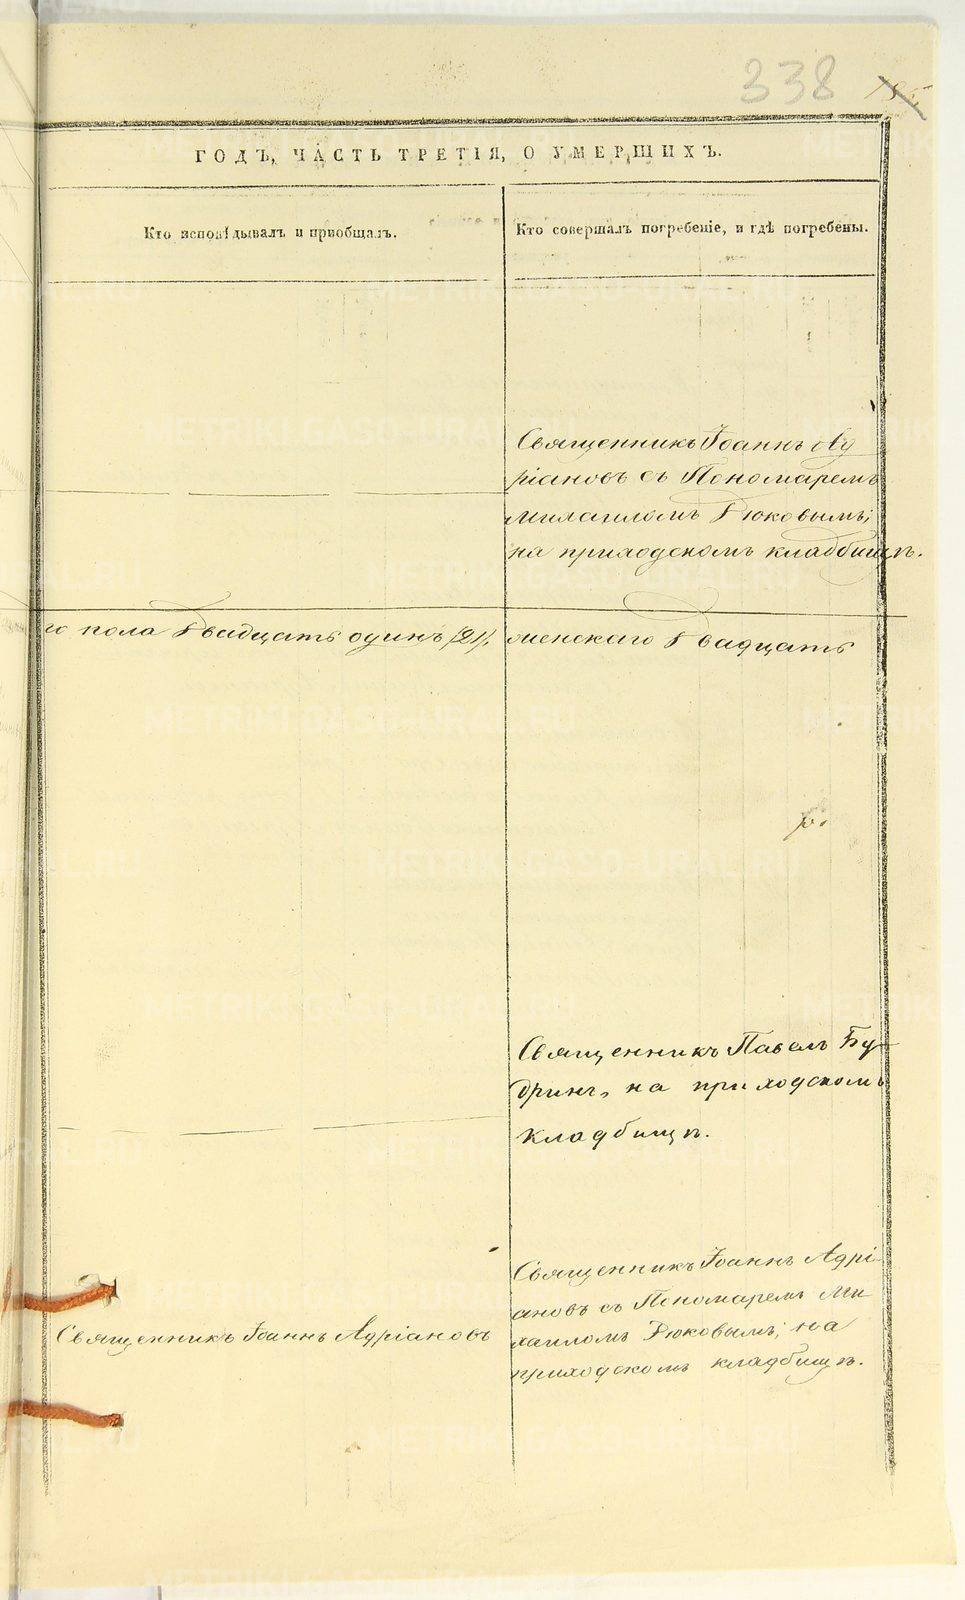 338
ГОДЪ, ЧАСТЬ ТРЕТІЯ, О УМЕРШИХЪ.
Кто исповѣдывалъ и пріобщалъ.
Кто совершалъ погребеніе, и гдѣ погребены.
Священникъ Іоаннъ Ад
ріановъ съ Пономаремъ
Михаиломъ Дюковымъ;
на приходскомъ кладбищѣ.
го пола двадцать одинъ /21/,
женскаго двадцать
Священникъ Павелъ Бу-
дринъ, на приходскомъ
кладбищѣ.
Священникъ Іоаннъ Адрі-
ановъ съ Пономаремъ Ми
хаиломъ Дюковымъ; на
приходскомъ кладбищѣ.
Священникъ Іоаннъ Адріановъ
METRIKI.GASO-URAL.RU